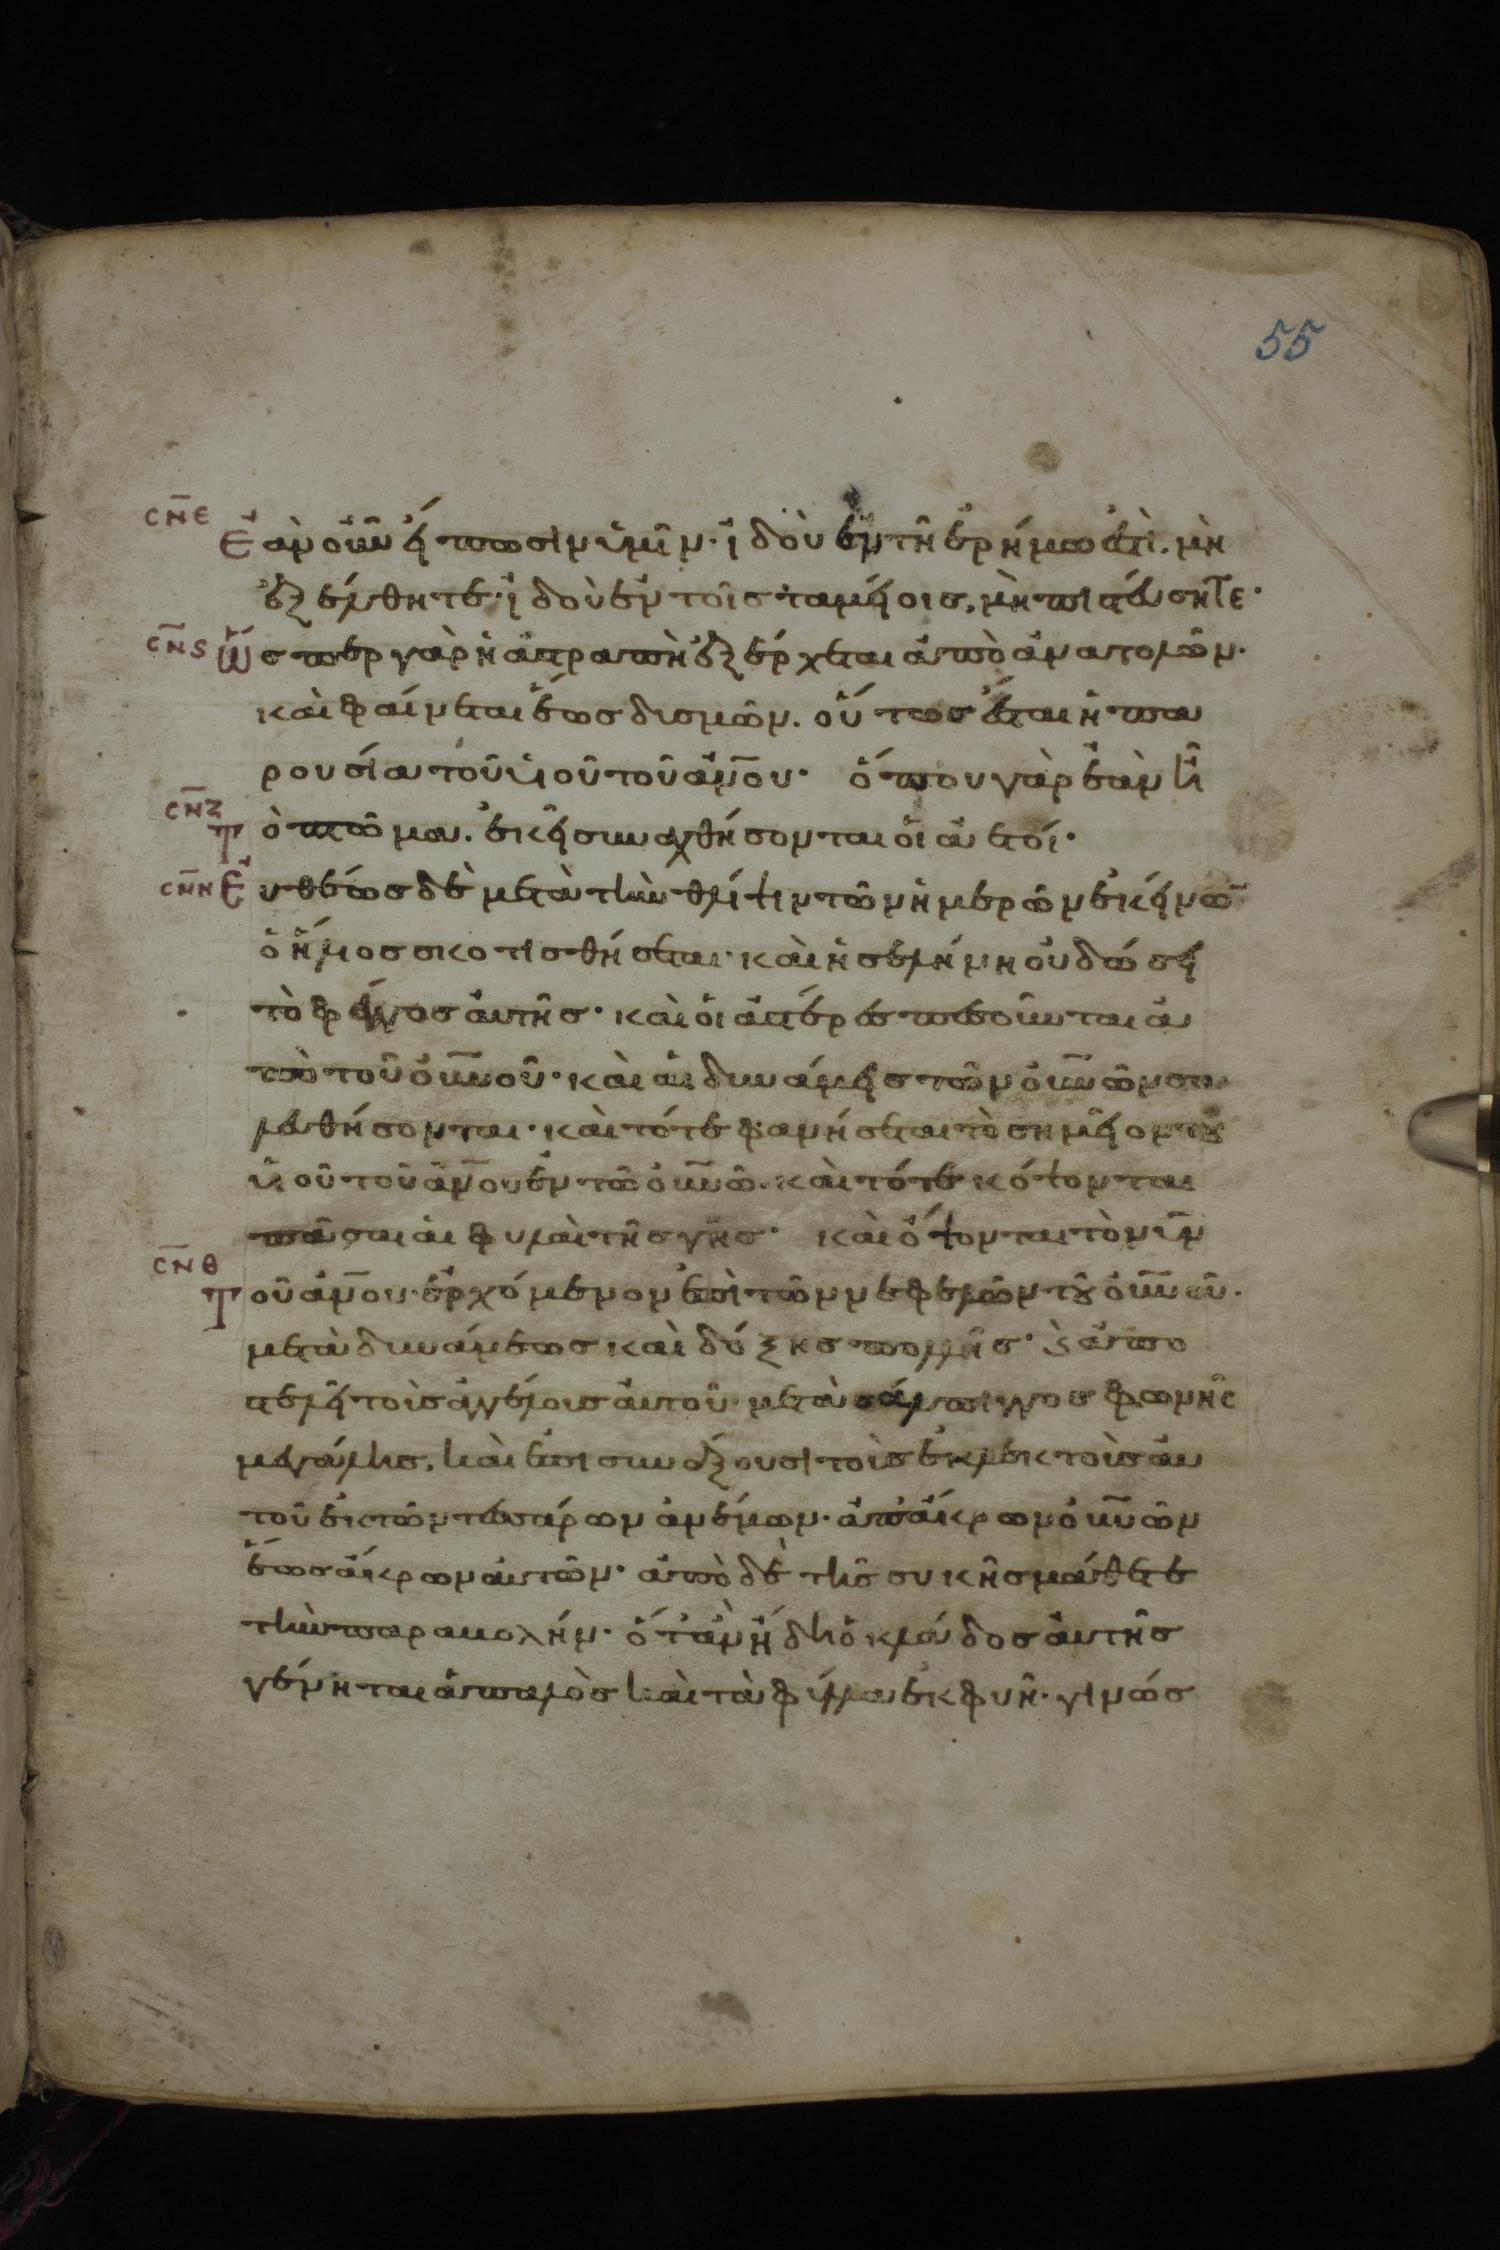 55
σ̅ν̅ε̅
Ἐὰν οὖν εἴπωσιν ὑμῖν· ἰδοὺ ἐν τῇ ἐρήμω ἐστὶ. μὴ
ἐξέλθητε· ἰδοὺ ἐν τοῖς ταμείοις, μὴ πιστεύσητε·
σ̅ν̅ς
Ὥσπερ γὰρ ἡ ἀστραπὴ ἐξέρχεται ἀπὸ ἀνατολῶν·
καὶ φαίνεται ἕως δισμῶν. οὕτως ἔσται ἡ πα
ρουσία τοῦ υἱοῦ τοῦ ἀν̅ου· ὅπου γὰρ ἐὰν ἦ
σ̅ν̅ζ
τὸ πτῶμα. ἐκεῖ συναχθήσονται οἱ ἀετοί·
σ̅ν̅η
Εὐθέως δὲ μετὰ τὴν θλίψιν τῶν ἡμερῶν ἐκείνω̅
ὁ ἥλιος σκοτισθήσεται· καὶ ἡ σελήνη οὐ δώσει
τὸ φέγγος αὐτῆς· καὶ οἱ ἀστέρες πεσοῦνται ἀ
πὸ τοῦ οὐ̅νοῦ· καὶ αἱ δυνάμεις τῶν οὐ̅νῶν σα
λευθήσονται· καὶ τότε φανήσεται τὸ σημεῖον τοῦ
υἱοῦ τοῦ ἀν̅ου ἐν τῶ οὐ̅νῶ. καὶ τότε κόψονται
πᾶσαι αἱ φυλαὶ τῆς γῆς· καὶ ὄψονται τὸν υ̅ν
σ̅ν̅θ
Τοῦ ἀν̅ου· ἐρχόμενον ἐπὶ τῶν νεφελῶν τοῦ οὐ̅νοῦ.
μετὰ δυνάμεως καὶ δόξης πολλῆς· ϗ ἀπο
στελεῖ τοὺς ἀγγέλους αὐτοῦ· μετὰ σάλπιγγος φωνῆς
μεγάλης, καὶ ἐπισυνάξουσι τοὺς ἐκλεκτοὺς αὐ
τοῦ ἐκ τῶν τεσσάρων ἀνέμων· ἀπ᾽ ἄκρων οὐ̅νῶν
ἕως ἄκρων αὐτῶν· ἀπὸ δὲ τῆς συκῆς μάθετε
τὴν παραβολήν· ὅταν ἤδη ὁ κλάδος αὐτῆς
γένηται ἁπαλὸς καὶ τὰ φύλλα ἐκφυῆ· γινώσ